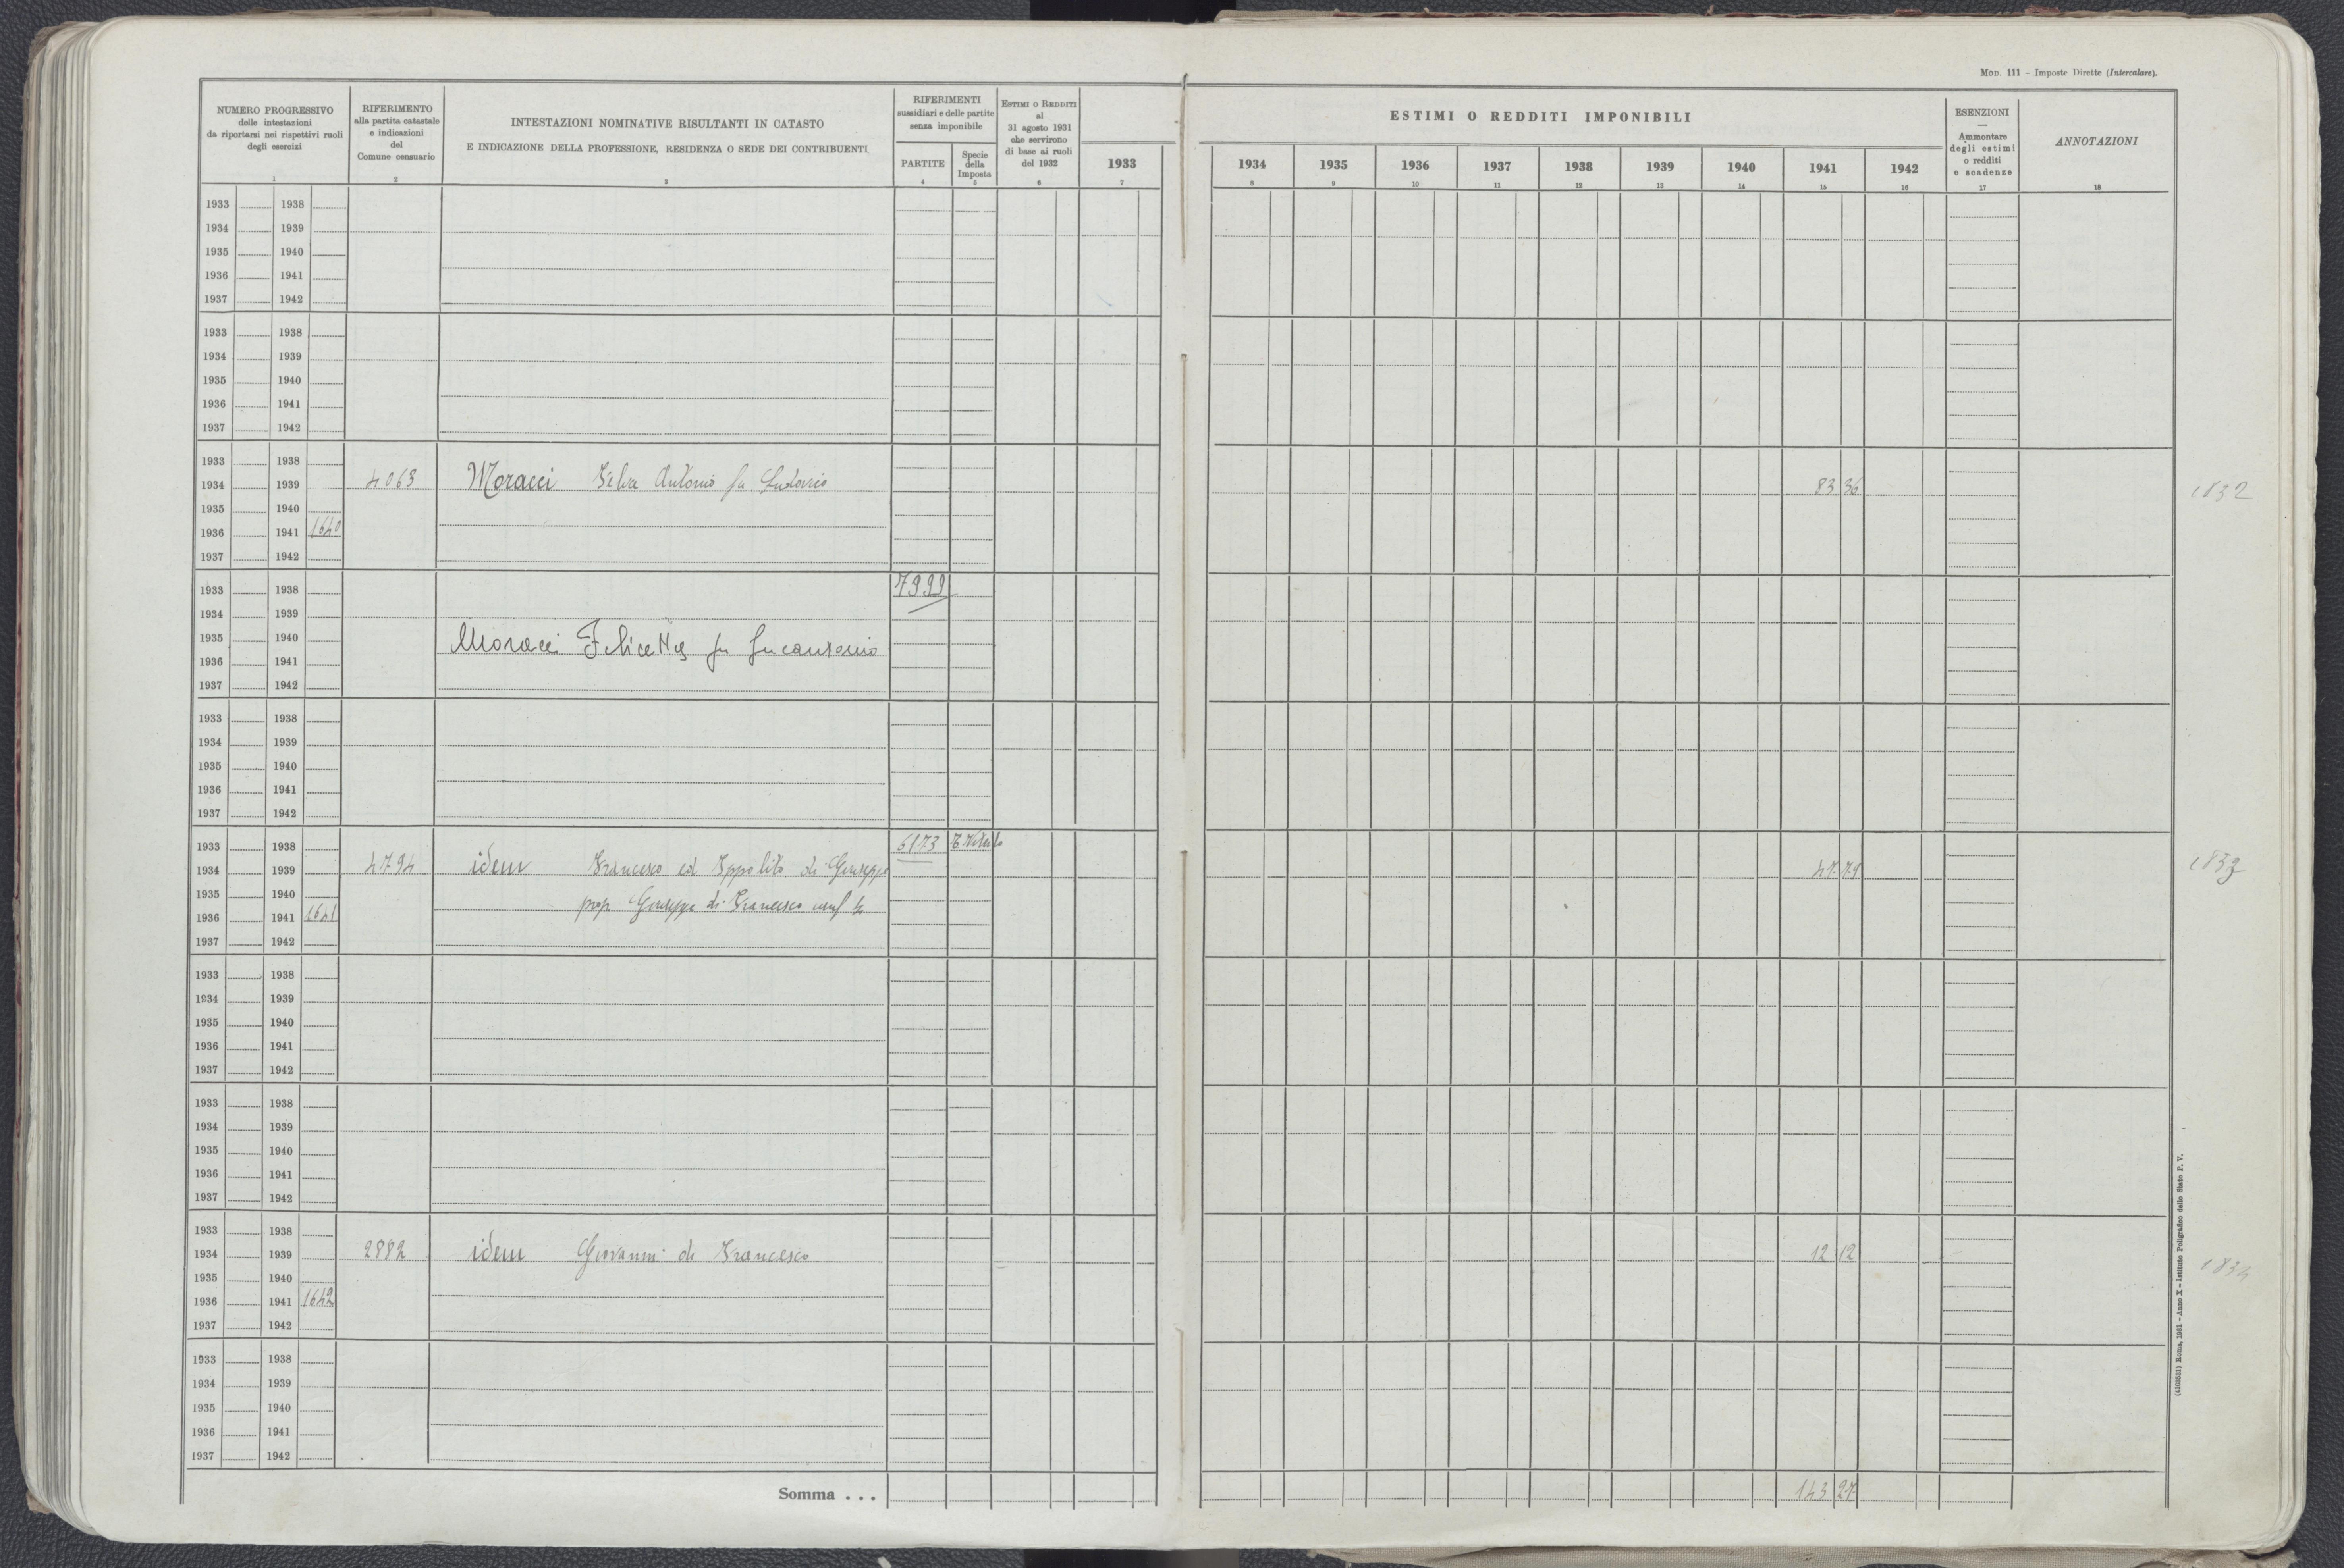 Mod. 111 - Imposte Dirette (Intercalare).
NUMERO PROGRESSIVO
delle intestazioni
da riportarsi nei rispettivi ruoli
degli esercizi
1
RIFERIMENTO
alla partita catastale
e indicazioni
del
Comune censuario
2
INTESTAZIONI NOMINATIVE RISULTANTI IN CATASTO
E INDICAZIONE DELLA PROFESSIONE, RESIDENZA O SEDE DEI CONTRIBUENTI
3
RIFERIMENTI
sussidiari e delle partite
senza imponibile
PARTITE
4
Specie
della
Imposta
5
Estimi o Redditi
al
31 agosto 1931
che servirono
di base ai ruoli
del 1932
6
1933
7
ESTIMI O REDDITI IMPONIBILI
1934 1935 1936 1937 1938 1939 1940 1941 1942
8 9 10 11 12 13 14 15 16
ESENZIONI
—
Ammontare
degli estimi
o redditi
e scadenze
17
ANNOTAZIONI
18
1933 1938
1934 1939
1935 1940
1936 1941
1937 1942
1933 1938
1934 1939
1935 1940
1936 1941
1937 1942
1933 1938
1934 1939 4063 Moracci Antonio fu 83 36 1832
1935 1940
1936 1941 1640
1937 1942
1933 1938 7999
1934 1939
1935 1940 Moracci fu Lucantonio
1936 1941
1937 1942
1933 1938
1934 1939
1935 1940
1936 1941
1937 1942
1933 1938 6173
1934 1939 4794 idem Francesco ed Ippolito di Giuseppe 47 79 1833
1935 1940 prop Giuseppe di Francesco usuf
1936 1941 1641
1937 1942
1933 1938
1934 1939
1935 1940
1936 1941
1937 1942
1933 1938
1934 1939
1935 1940
1936 1941
1937 1942
1933 1938
1934 1939 2882 idem Giovanni di Francesco 12 12 1834
1935 1940
1936 1941 1642
1937 1942
1933 1938
1934 1939
1935 1940
1936 1941
1937 1942
Somma . . . 143 27
(4103531) Roma, 1931 - Anno X - Istituto Poligrafico dello Stato P. V.